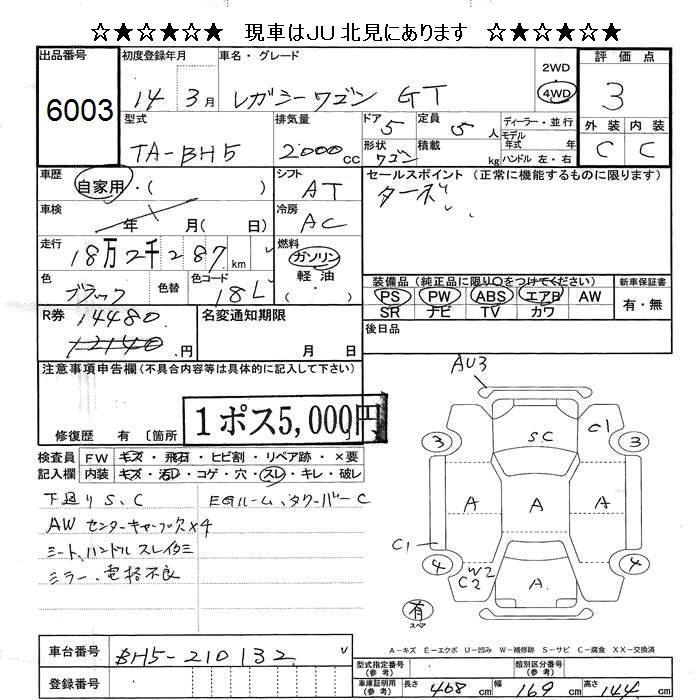 ☆★☆★☆★ 現車はJU 北見にあります ☆★☆★☆★
出品番号
6003
初度登録年月
14 年 3月
車名・グレード
レガシーワゴン GT
2WD
4WD
評価点
3
外装 内装
C C
型式
TA-BH5
排気量
2000cc
ドア 5
形状 ワゴン
定員 5 人
積載 kg
ディーラー・並行
モデル年式 年
ハンドル 左・右
車歴
自家用・( )
シフト
AT
セールスポイント (正常に機能するものに限ります)
ターボ
車検
年 月( 日)
冷房
AC
走行
18万2千287km
燃料
ガソリン
軽油
・( )
色
ブラック
色替
色コード
18L
装備品(純正品に限り○をつけてください)
PS PW ABS エアB AW
SR ナビ TV カワ
新車保証書
有・無
R券
14480
12140 円
名変通知期限
月 日
後日品
注意事項申告欄(不具合内容等は具体的に記入して下さい)
1ポス5,000円
修復歴 有 〔箇所
検査員
記入欄
FW キズ・飛石・ヒビ割・リペア跡・×要
内装 キズ・汚レ・コゲ・穴・スレ・キレ・破レ
下廻りS、C
EGルーム、タワーバーC
AWセンターキャップ欠×4
シート、ハンドルスレイタミ
ミラー、電格不良
AU3
3
SC
C1
3
A
A
A
C1
4
W2
C2
A
4
有
スペア
A-キズ E-エクボ U-凹み W-補修跡 S-サビ C-腐食 XX-交換済
車台番号
BH5-210132
登録番号
型式指定番号
(参考)
類別区分番号
(参考)
車庫証明用
(参考)
長さ 468 cm 幅 169 cm 高さ 144 cm